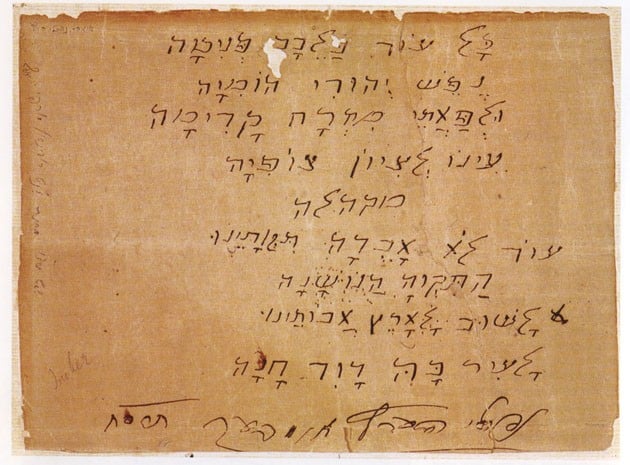 כָּל עוֹד בַּלֵּבָב פְּנִימָה
נֶפֶשׁ יְהוּדִי הוֹמִיָּה
וּלְפַאֲתֵי מִזְרָח קָדִימָה
עֵינוֹ לְצִיּוֹן צוֹפִיָּה
מוקהלה
עוֹד לֹא אָבְדָה תִּקְוָתֵינוּ
הַתִּקְוָה הַנּוֹשָׁנָה
לָשׁוּב לְאֶרֶץ אֲבוֹתֵינוּ
לָעִיר בָּהּ דָּוִד חָנָה
נפתלי הערץ אימבער תרסח
Imber